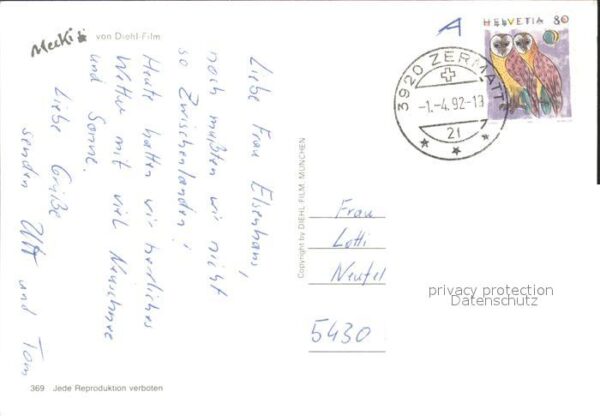 Mecki
von Diehl-Film
A
HELVETIA 80
3920 ZERMATT
-1.-4.92-13
21
Liebe Frau Elsenhans,
noch mußten wir nicht
so Zwischenlanden!
Heute hatten wir herrliches
Wetter mit viel Neuschnee
und Sonne.
Liebe Grüße
senden Ulli und Tom
Copyright by DIEHL FILM, MÜNCHEN
Frau
Lotti
Neufel
5430
privacy protection
Datenschutz
369 Jede Reproduktion verboten